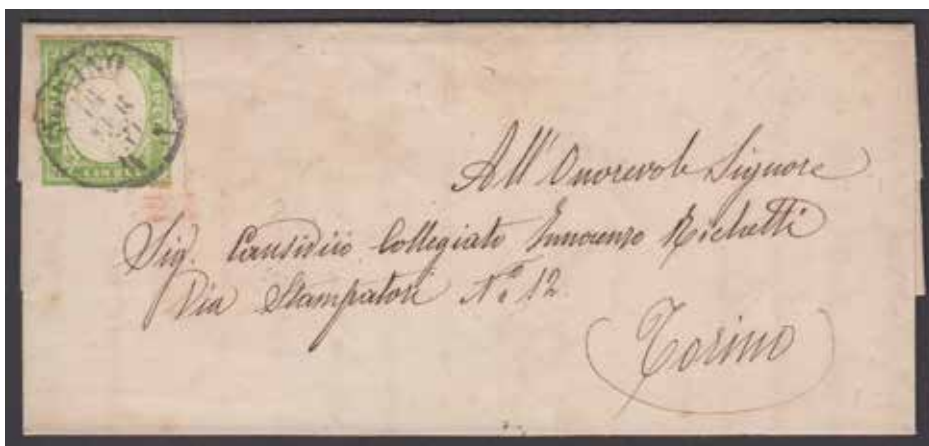 TORINO
All' Onorevole Signore
Sig. Causidico Collegiato Innocenzo Richetti
Via Stampatori N.º 12
Torino